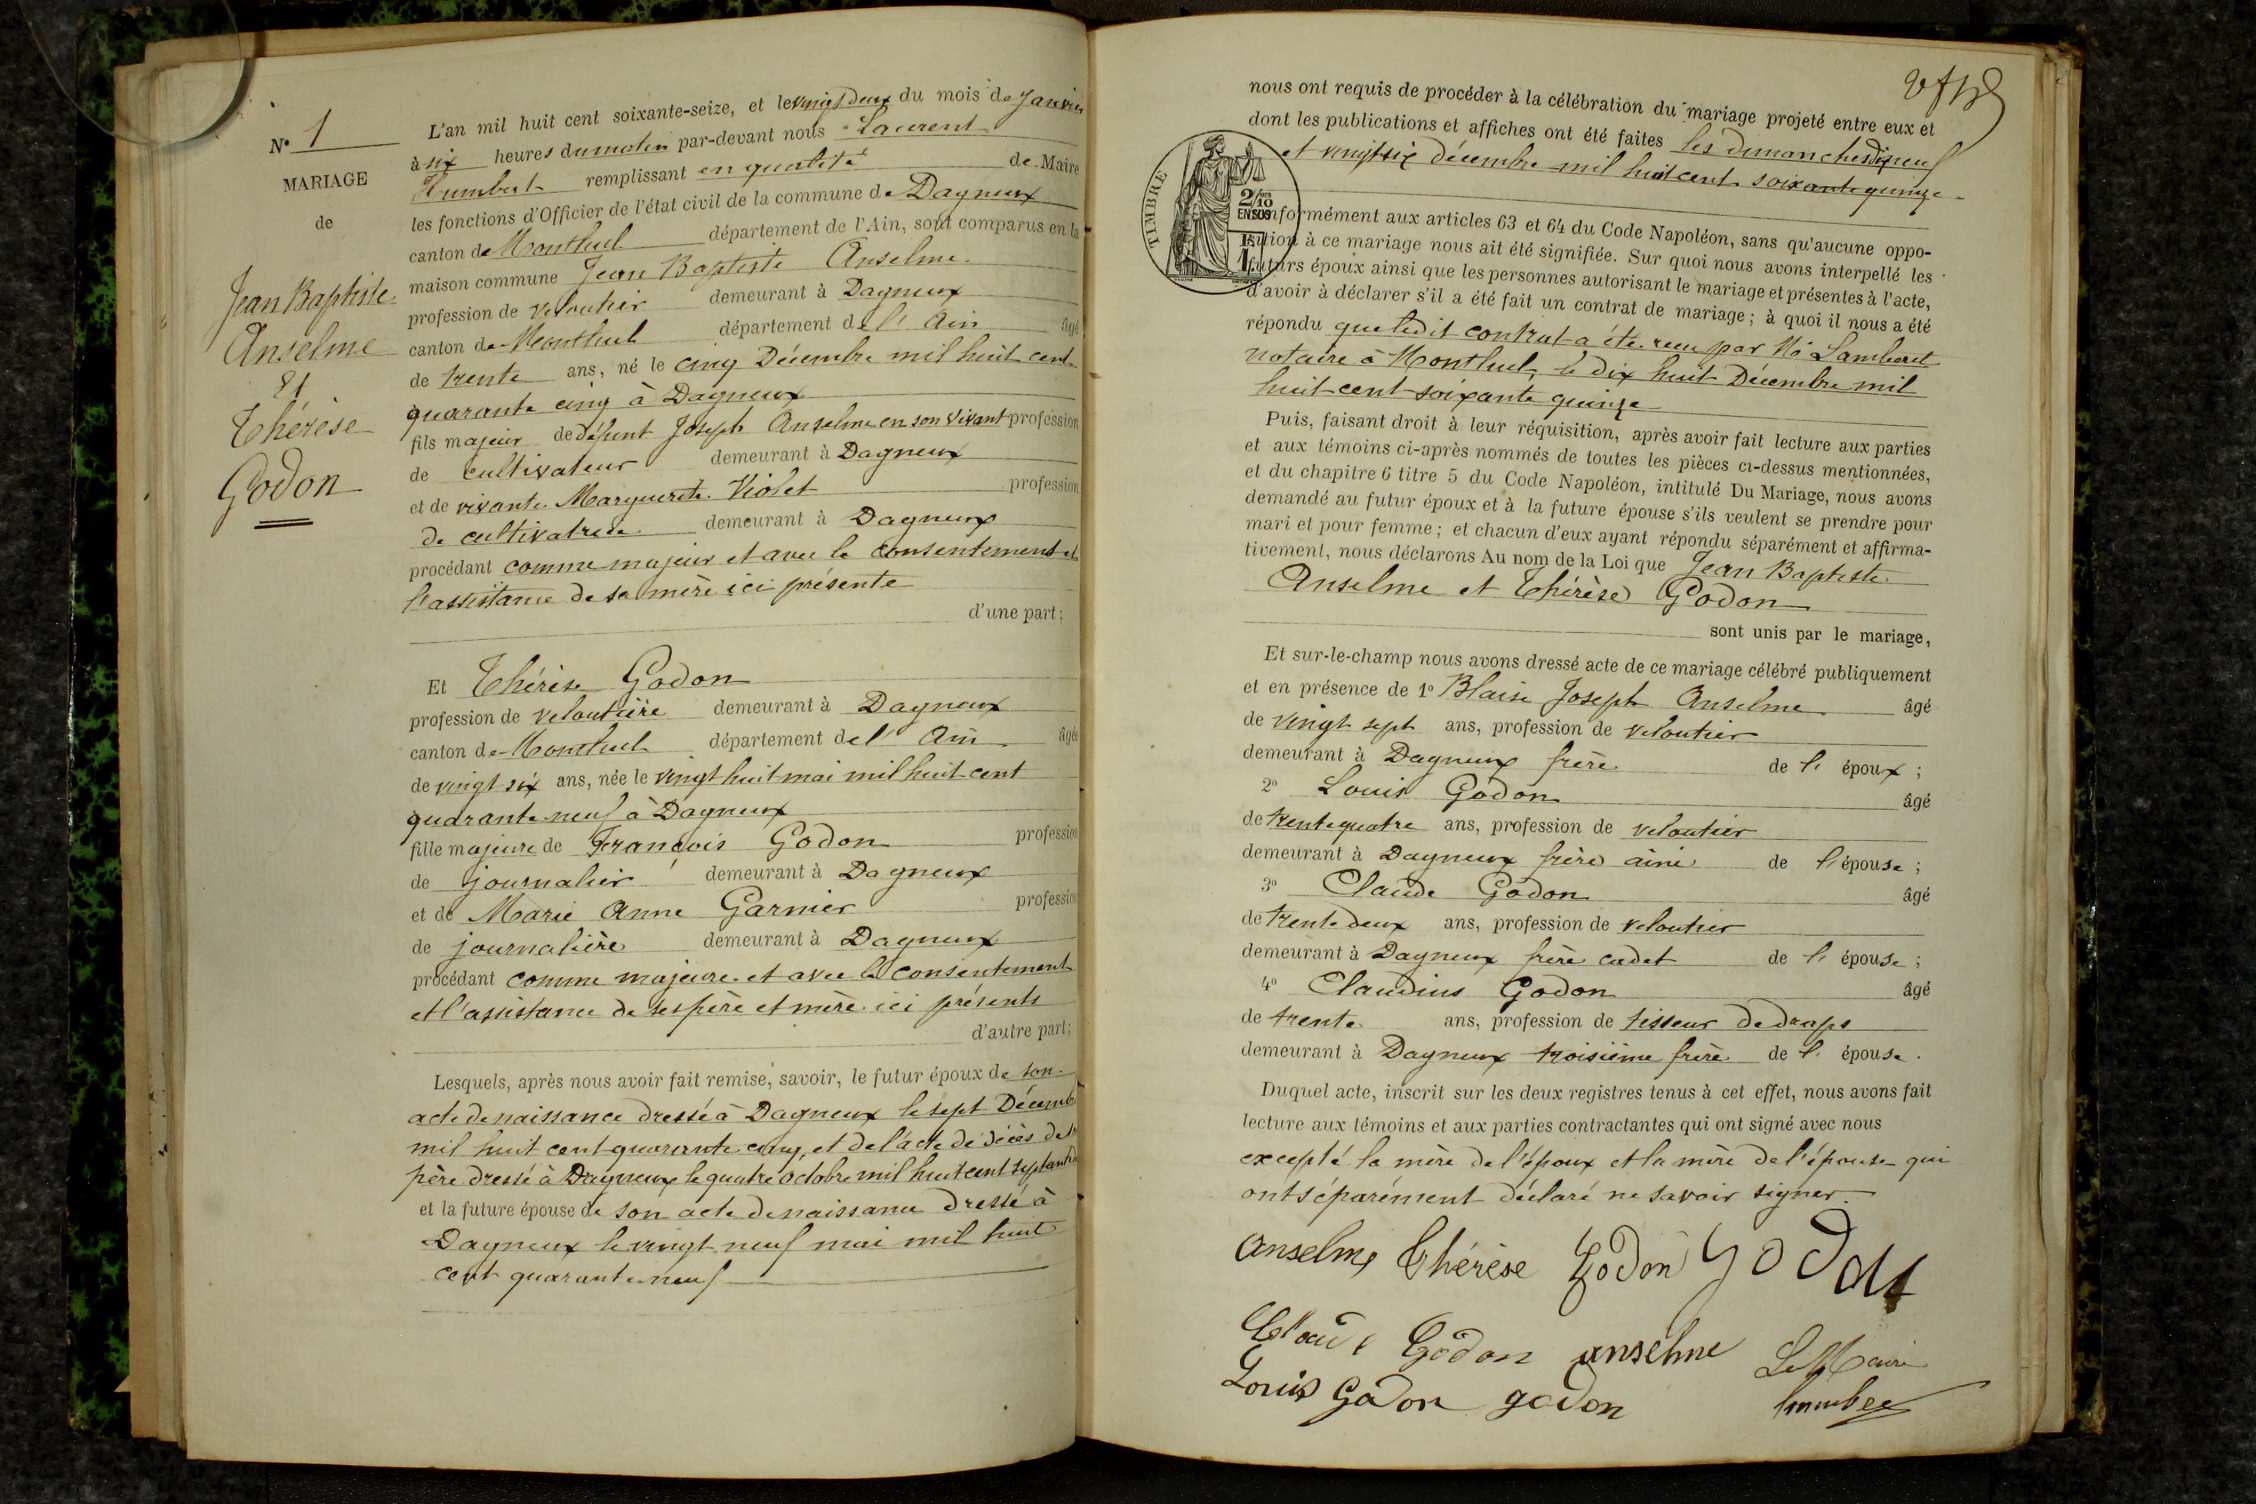 N° 1
MARIAGE
de
Jean Baptiste
Anselme
et
Thérèse
Godon
L'an mil huit cent soixante-seize, et le vingt deux du mois de Janvier
à six heures du matin par-devant nous Laurent
Humbert remplissant en qualité de Maire
les fonctions d'Officier de l'état civil de la commune de Dagneux
canton de Montluel département de l'Ain, sont comparus en la
maison commune Jean Baptiste Anselme
profession de veloutier demeurant à Dagneux
canton de Montluel département de l'Ain âgé
de trente ans, né le cinq Décembre mil huit cent
quarante cinq à Dagneux
fils majeur de défunt Joseph Anselme en son vivant profession
de cultivateur demeurant à Dagneux
et de vivante Marguerite Violet profession
de cultivatrice demeurant à Dagneux
procédant comme majeur et avec le consentement et
l'assistance de sa mère ici présente
d'une part;
Et Thérèse Godon
profession de veloutière demeurant à Dagneux
canton de Montluel département de l'Ain âgée
de vingt six ans, née le vingt huit mai mil huit cent
quarante neuf à Dagneux
fille majeure de François Godon profession
de journalier demeurant à Dagneux
et de Marie Anne Garnier profession
de journalière demeurant à Dagneux
procédant comme majeure et avec le consentement
et l'assistance de ses père et mère ici présents
d'autre part;
Lesquels, après nous avoir fait remise, savoir, le futur époux de son
acte de naissance dressé à Dagneux le sept Décembre
mil huit cent quarante cinq, et de l'acte de décès de son
père dressé à Dagneux le quatre octobre mil huit cent septante
et la future épouse de son acte de naissance dressé à
Dagneux le vingt neuf mai mil huit
cent quarante neuf
nous ont requis de procéder à la célébration du mariage projeté entre eux et
dont les publications et affiches ont été faites les dimanches dix neuf
et vingt six décembre mil huit cent soixante quinze
TIMBRE
2/10
EN SUS
conformément aux articles 63 et 64 du Code Napoléon, sans qu'aucune oppo-
sition à ce mariage nous ait été signifiée. Sur quoi nous avons interpellé les
futurs époux ainsi que les personnes autorisant le mariage et présentes à l'acte,
d'avoir à déclarer s'il a été fait un contrat de mariage; à quoi il nous a été
répondu que ledit contrat a été recu par Me Lamberet
notaire à Montluel, le dix huit Décembre mil
huit cent soixante quinze
Puis, faisant droit à leur réquisition, après avoir fait lecture aux parties
et aux témoins ci-après nommés de toutes les pièces ci-dessus mentionnées,
et du chapitre 6 titre 5 du Code Napoléon, intitulé Du Mariage, nous avons
demandé au futur époux et à la future épouse s'ils veulent se prendre pour
mari et pour femme; et chacun d'eux ayant répondu séparément et affirma-
tivement, nous déclarons Au nom de la Loi que Jean Baptiste
Anselme et Thérèse Godon
sont unis par le mariage,
Et sur-le-champ nous avons dressé acte de ce mariage célébré publiquement
et en présence de 1° Blaise Joseph Anselme âgé
de vingt sept ans, profession de veloutier
demeurant à Dagneux frère de l'époux;
2° Louis Godon âgé
de trente quatre ans, profession de veloutier
demeurant à Dagneux frère aîné de l'épouse;
3° Claude Godon âgé
de trente deux ans, profession de veloutier
demeurant à Dagneux frère cadet de l'épouse;
4° Claudius Godon âgé
de trente ans, profession de tisseur de draps
demeurant à Dagneux troisième frère de l'épouse.
Duquel acte, inscrit sur les deux registres tenus à cet effet, nous avons fait
lecture aux témoins et aux parties contractantes qui ont signé avec nous
excepté la mère de l'époux et la mère de l'épouse qui
ont séparément déclaré ne savoir signer.
anselme Thérèse Godon
Claude Godon anselme Le Maire
Louis Godon godon humbert